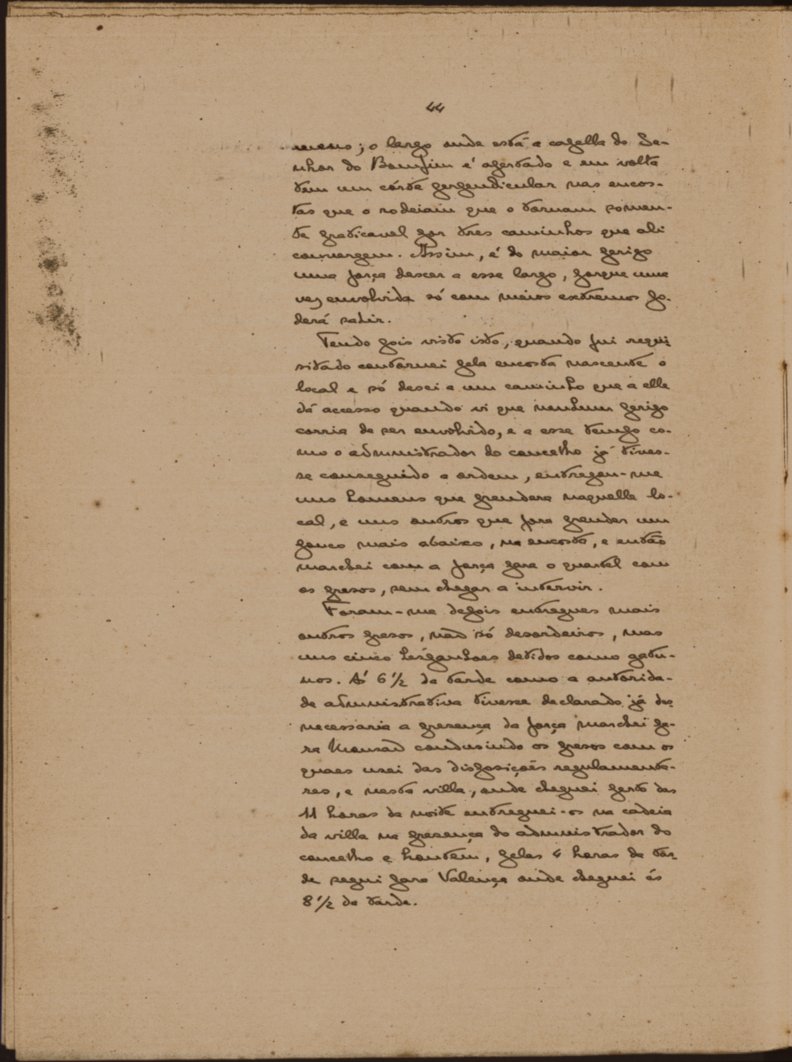 44
meno; o largo onde está a capella do Se-
nhor do Bomfim é apertado e em volta
tem um córte perpendicular nas encos-
tas que o rodeiam que o tornam somen-
te praticavel por tres caminhos que ali
convergem. Assim, é do maior perigo
uma força descer a esse largo, porque uma
vez envolvida só com meios extremos po-
derá sahir.
Tendo pois visto isto, quando fui requi-
sitado contornei pela encosta nascente o
local e só desci a um caminho que a elle
dá accesso quando vi que nenhum perigo
corria de ser envolvido, e a esse tempo co-
mo o administrador do concelho já tives-
se conseguido a ordem, entregou-me
uns homens que prendera naquelle lo-
cal, e uns outros que fora prender um
pouco mais abaixo, na encosta, e então
marchei com a força para o quartel com
os presos, sem chegar a intervir.
Foram-me depois entregues mais
outros presos, não só desordeiros, mas
uns cinco hespanhoes detidos como gatu-
nos. Ás 6 1/2 da tarde como a autorida-
de administrativa tivesse declarado já des
necessaria a presença da força marchei pa-
ra Monsão conduzindo os presos com os
quaes usei das disposições regulamenta-
res, e nesta villa, onde cheguei perto das
11 horas da noite entreguei-os na cadeia
da villa na presença do administrador do
concelho e hontem, pelas 4 horas da tar-
de segui para Valença onde cheguei ás
8 1/2 da tarde.